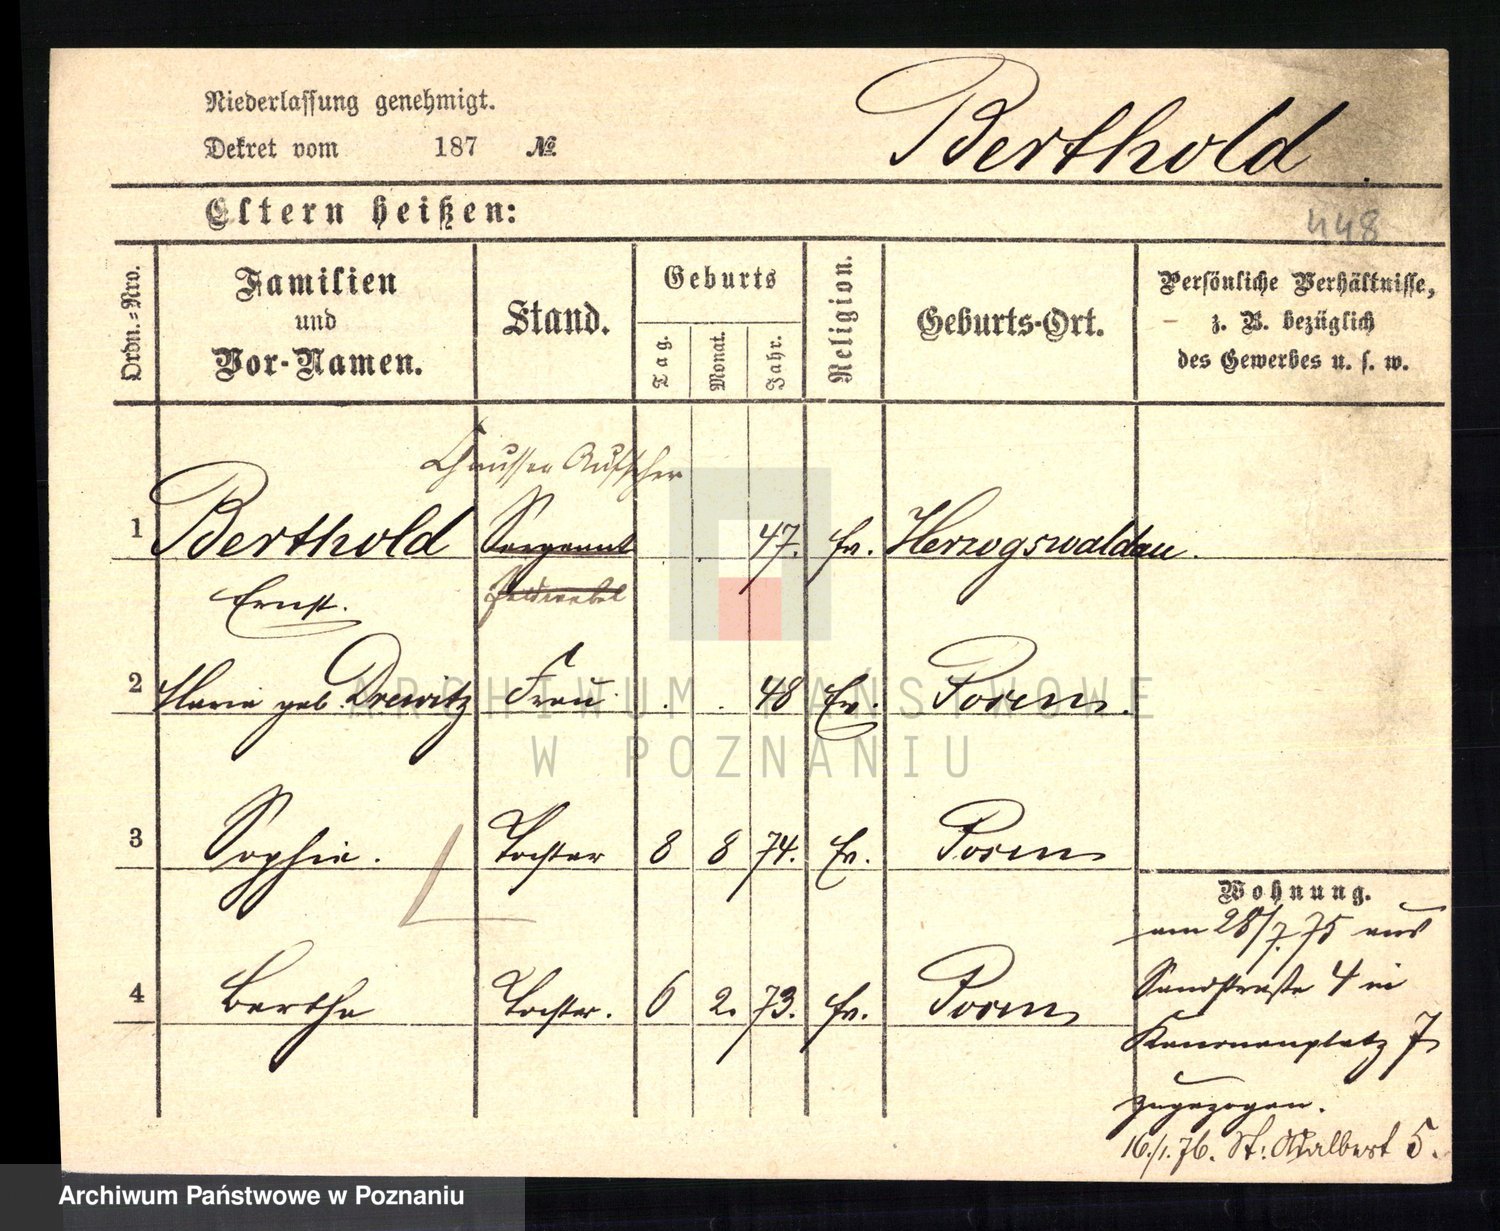 Niederlassung genehmigt.
Dekret vom 187 №
Berthold
Eltern heißen:
448
Ordn.-Nro.
Familien
und
Vor-Namen.
Stand.
Geburts
Tag.
Monat.
Jahr.
Religion.
Geburts-Ort.
Persönliche Verhältnisse,
z. B. bezüglich
des Gewerbes u. s. w.
Chaussee Aufseher
1 Berthold Sergeant 47. Ev. Herzogswaldau.
Ernst. Feldwebel
2 Marie geb. Drewitz Frau . . 48 Ev. Posen.
3 Sophie. Tochter 8 8 74. Ev. Posen
4 Bertha Tochter. 6 2. 73. Ev. Posen
Wohnung.
am 28/7. 75 aus
Sandstraße 4 in
Kanonenplatz 7
zugezogen.
16./1. 76. St: Adalbert 5.
ARCHIWUM PAŃSTWOWE
W POZNANIU
Archiwum Państwowe w Poznaniu